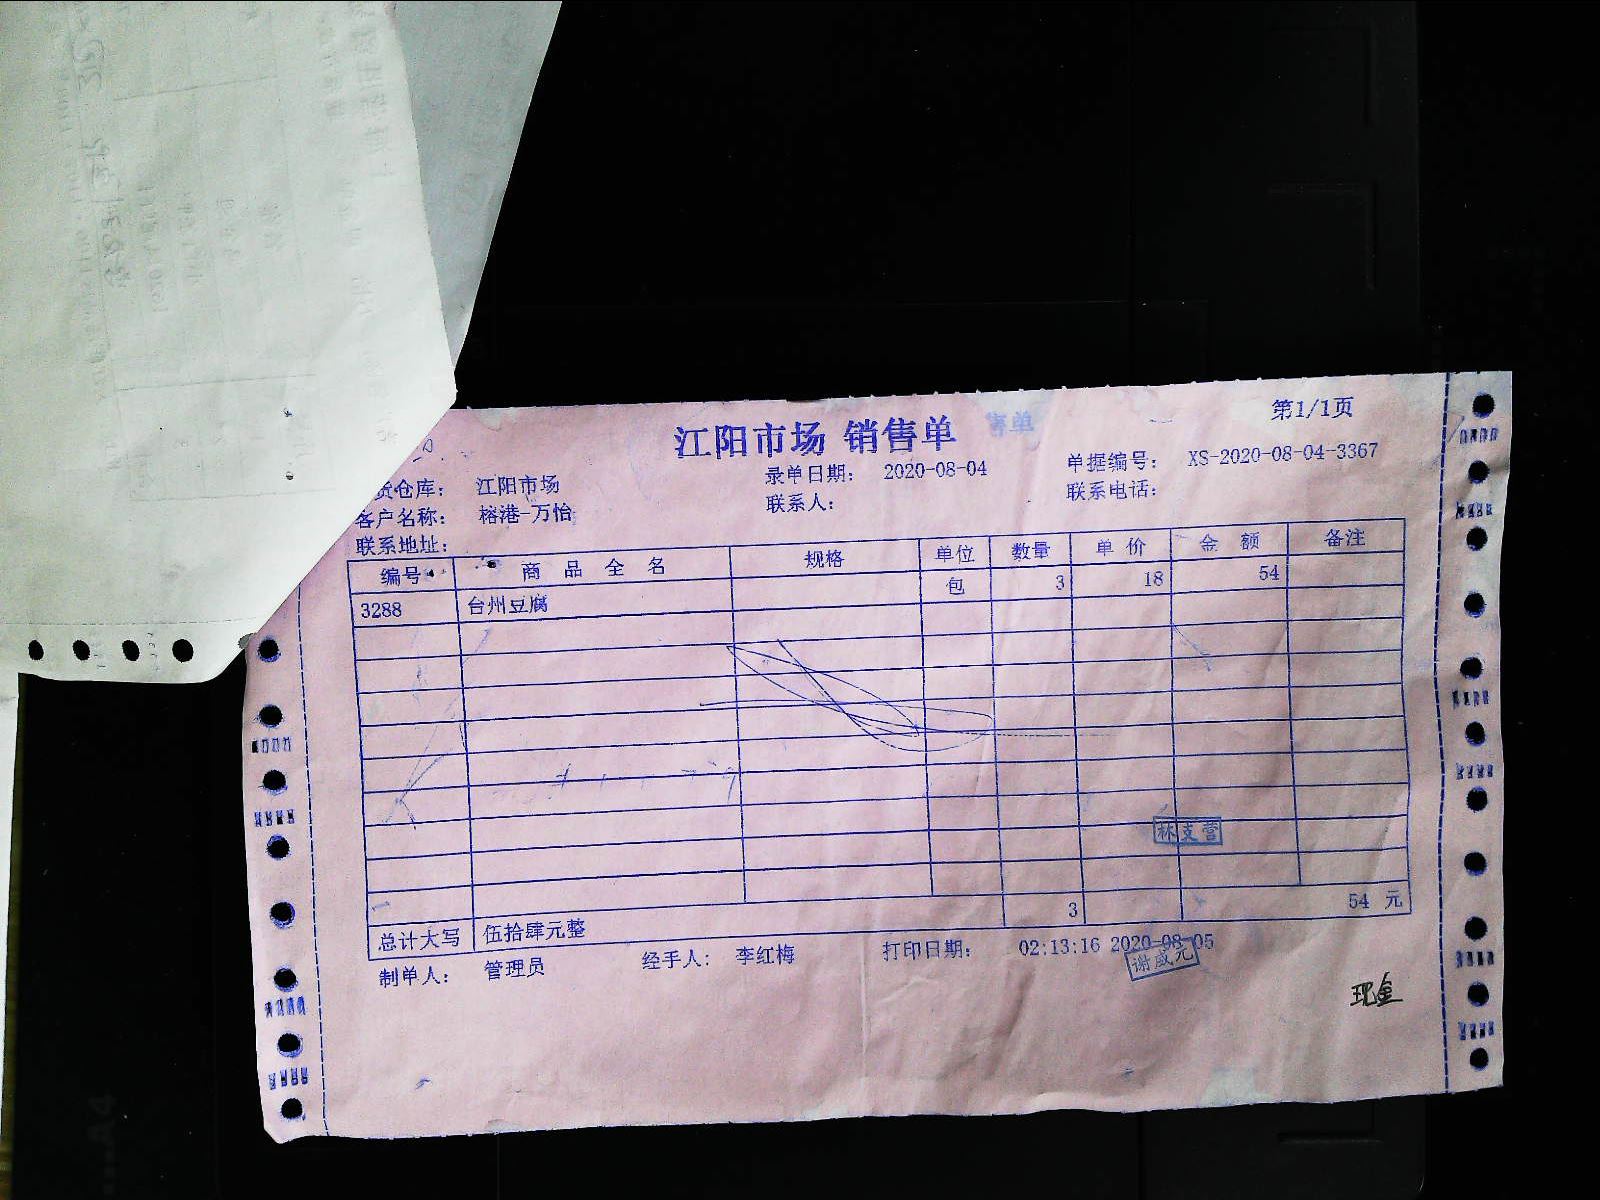 第1/1页
江阳市场 销售单
货仓库： 江阳市场 录单日期： 2020-08-04 单据编号： XS-2020-08-04-3367
客户名称： 榕港-万怡 联系人： 联系电话：
联系地址：
编号 商品全名 规格 单位 数量 单价 金额 备注
3288 台州豆腐 包 3 18 54
林支营
总计大写 伍拾肆元整 3 54 元
制单人： 管理员 经手人： 李红梅 打印日期： 02:13:16 2020-08-05
谢威元
现金